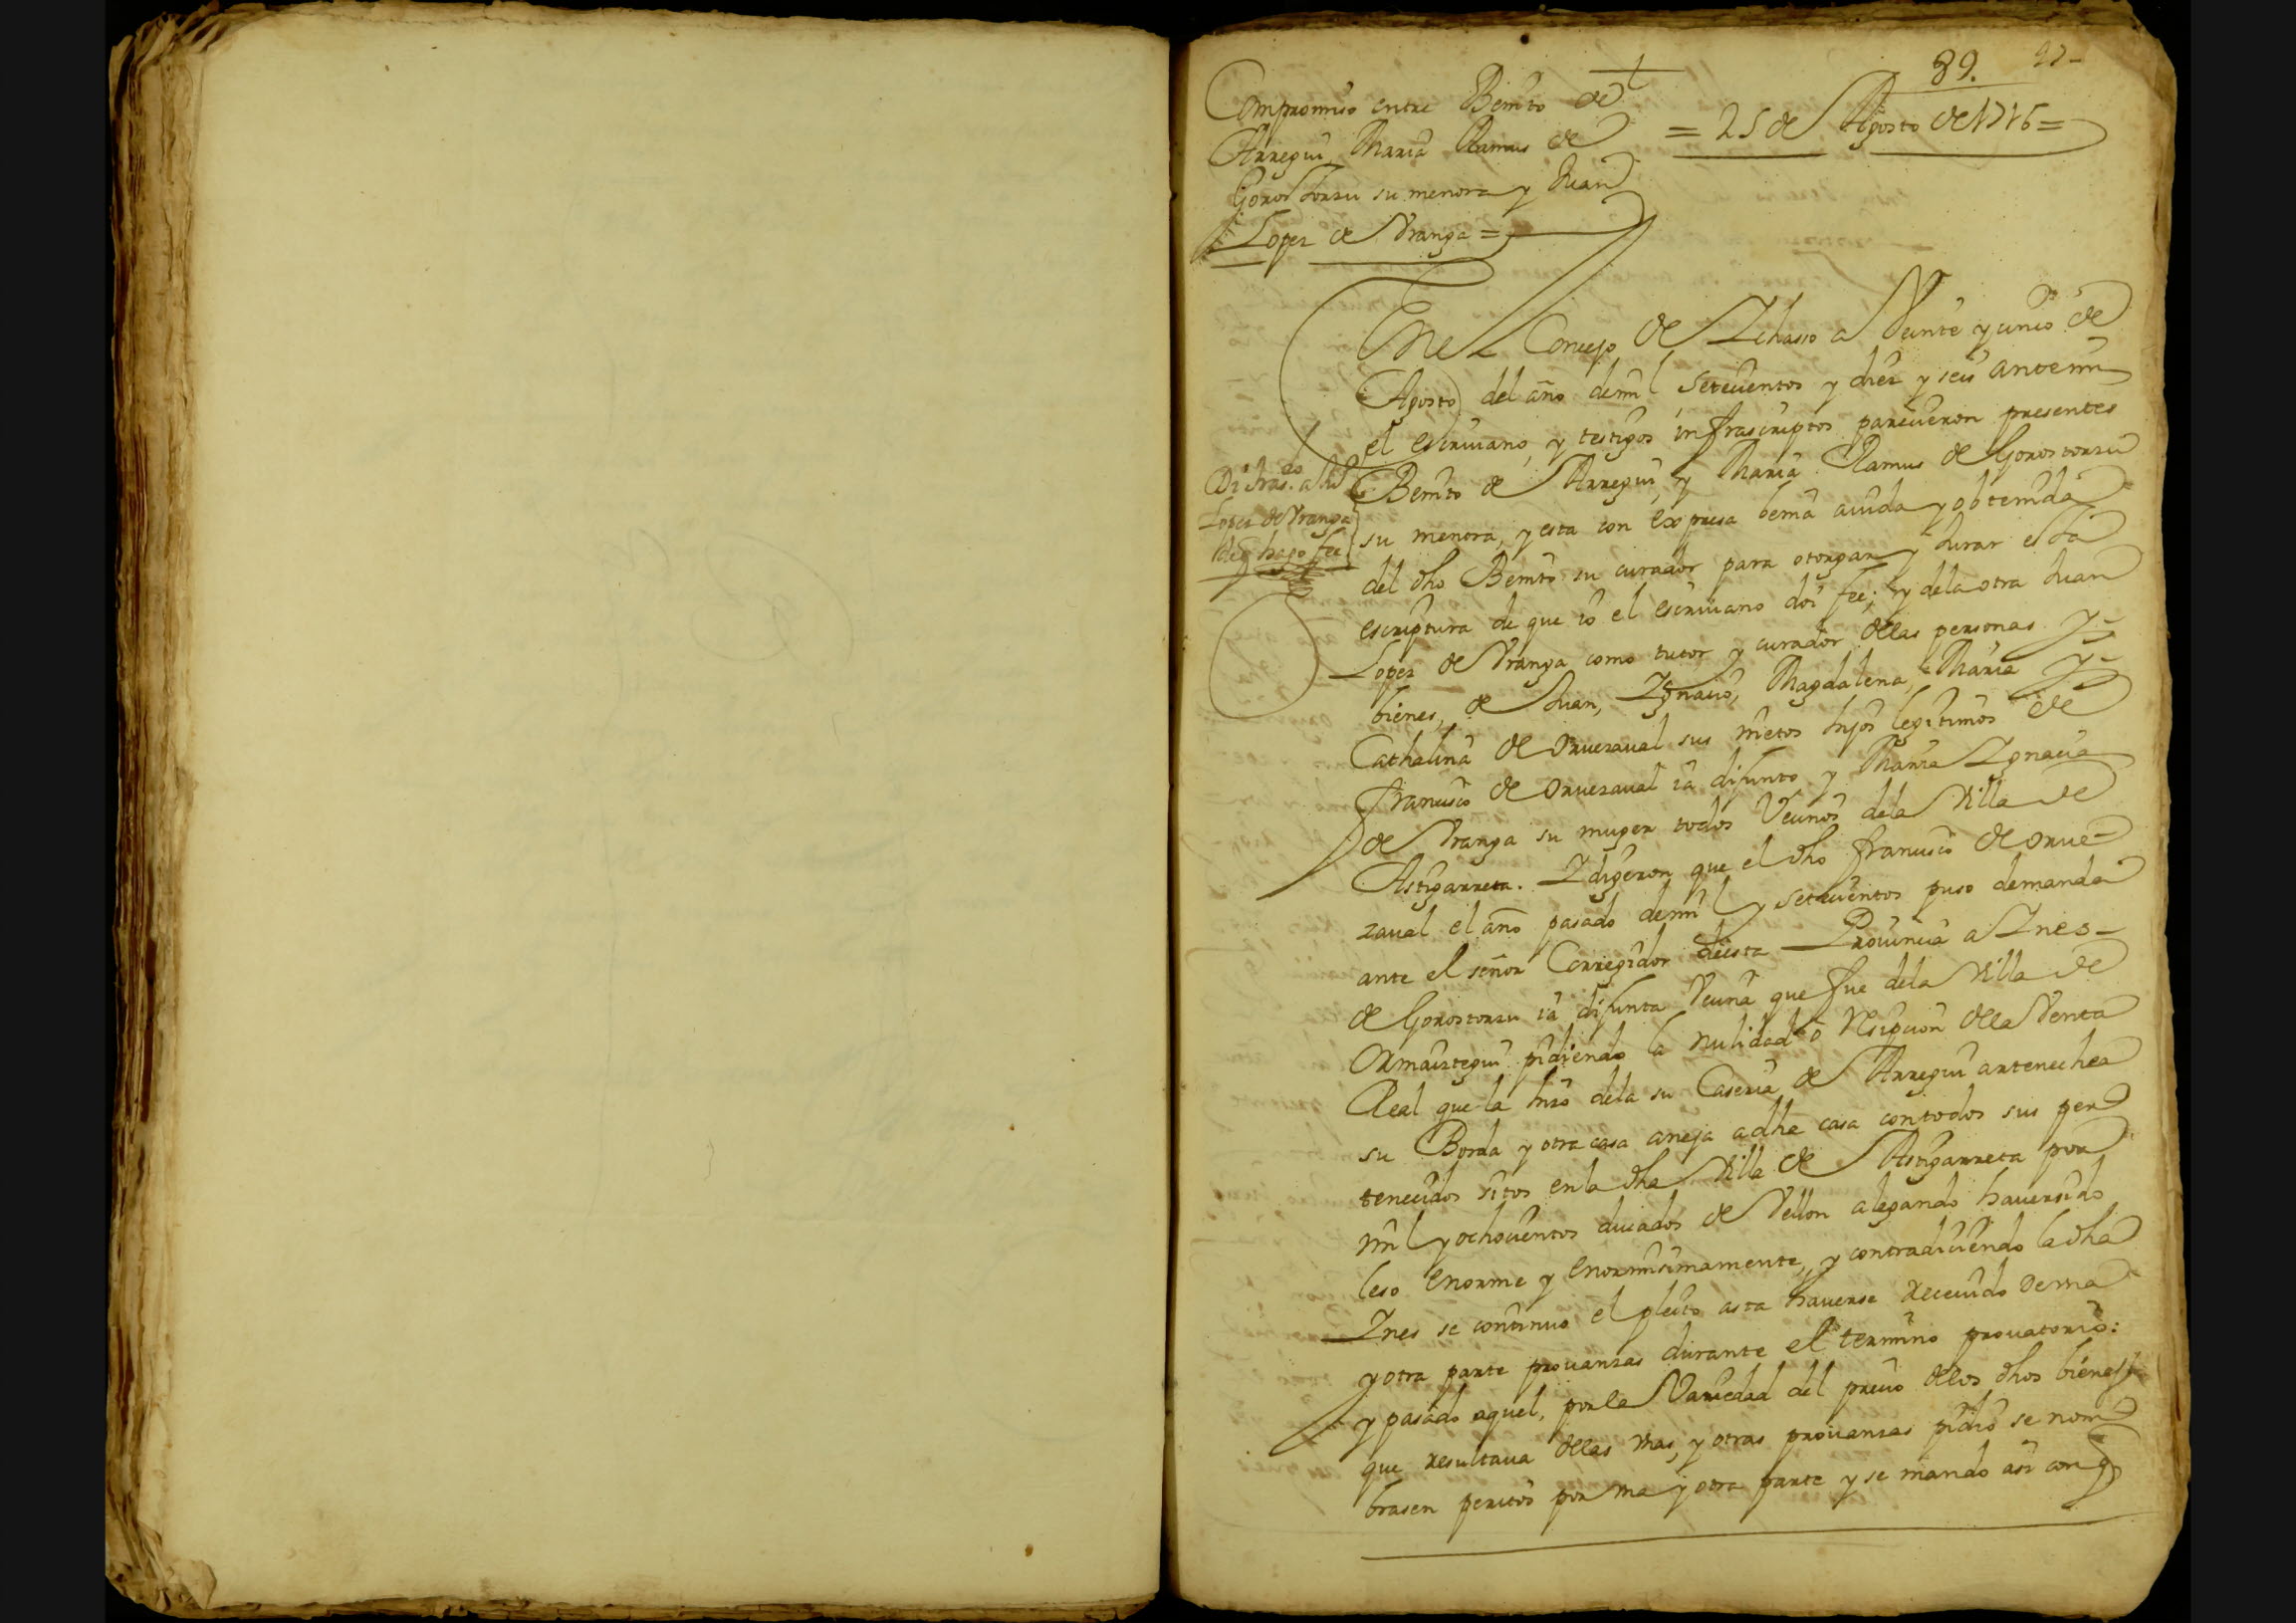 89.
Compromiso entre Benito de
Arregui, Maria Ramus de
Gorostorzu su menora y Juan
Lopez de Vranga =
= 25 de Agosto de 1716 =
En el Concejo de Ichasso a Veinte y cinco de
Agosto del año de mil setecientos y diez y seis ante mi
el escriuano, y testigos infrascriptos parecieron presentes
Benito de Arregui, y Maria Ramus de Gorostorzu
su menora, y esta con expresa lizenzia auida y obtenida
del dho Benito su curador para otorgar y Jurar esta
escriptura de que io el escriuano doi fee; y dela otra Juan
Lopez de Vranga como tutor y curador dellas personas y
bienes, de Juan, Ignacio, Magdalena, Maria y
Cathalina de Oruezaual sus nietos hijos legitimos de
Francisco de Oruezaual ia difunto y Maria Ignacia
de Vranga su muger todos Vecinos dela Villa de
Astigarreta. I digeron que el dho francisco de Orue-
zaual el año pasado de mil y setecientos puso demanda
ante el señor Corregidor desta Prouincia a Ines
de Gorostorzu ia difunta Vecina que fue dela Villa de
Ormaiztegui pidiendo la nulidad o Resicion della Venta
Real que la hizo dela su Caseria de Arregui artenechea
su Borda y otra casa aneja a dha casa con todos sus per
tenecidos sitos en la dha Villa de Astigarreta por
mil y ochocientos ducados de Vellon alegando hauer sido
leso enorme y enormisimamente, y contradiciendo la dha
Ines se continuo el pleito asta hauerse Receuido de vna
y otra parte prouanzas durante el termino prouatorio:
y pasado aquel, por la Variedad del precio dellos dhos bienes
que resultaua dellas vnas, y otras prouanzas pidio se nom
brasen peritos por vna y otra parte y se mando asi con
Di tras.do a Juº
Lopez de Vranga
de q hago fee